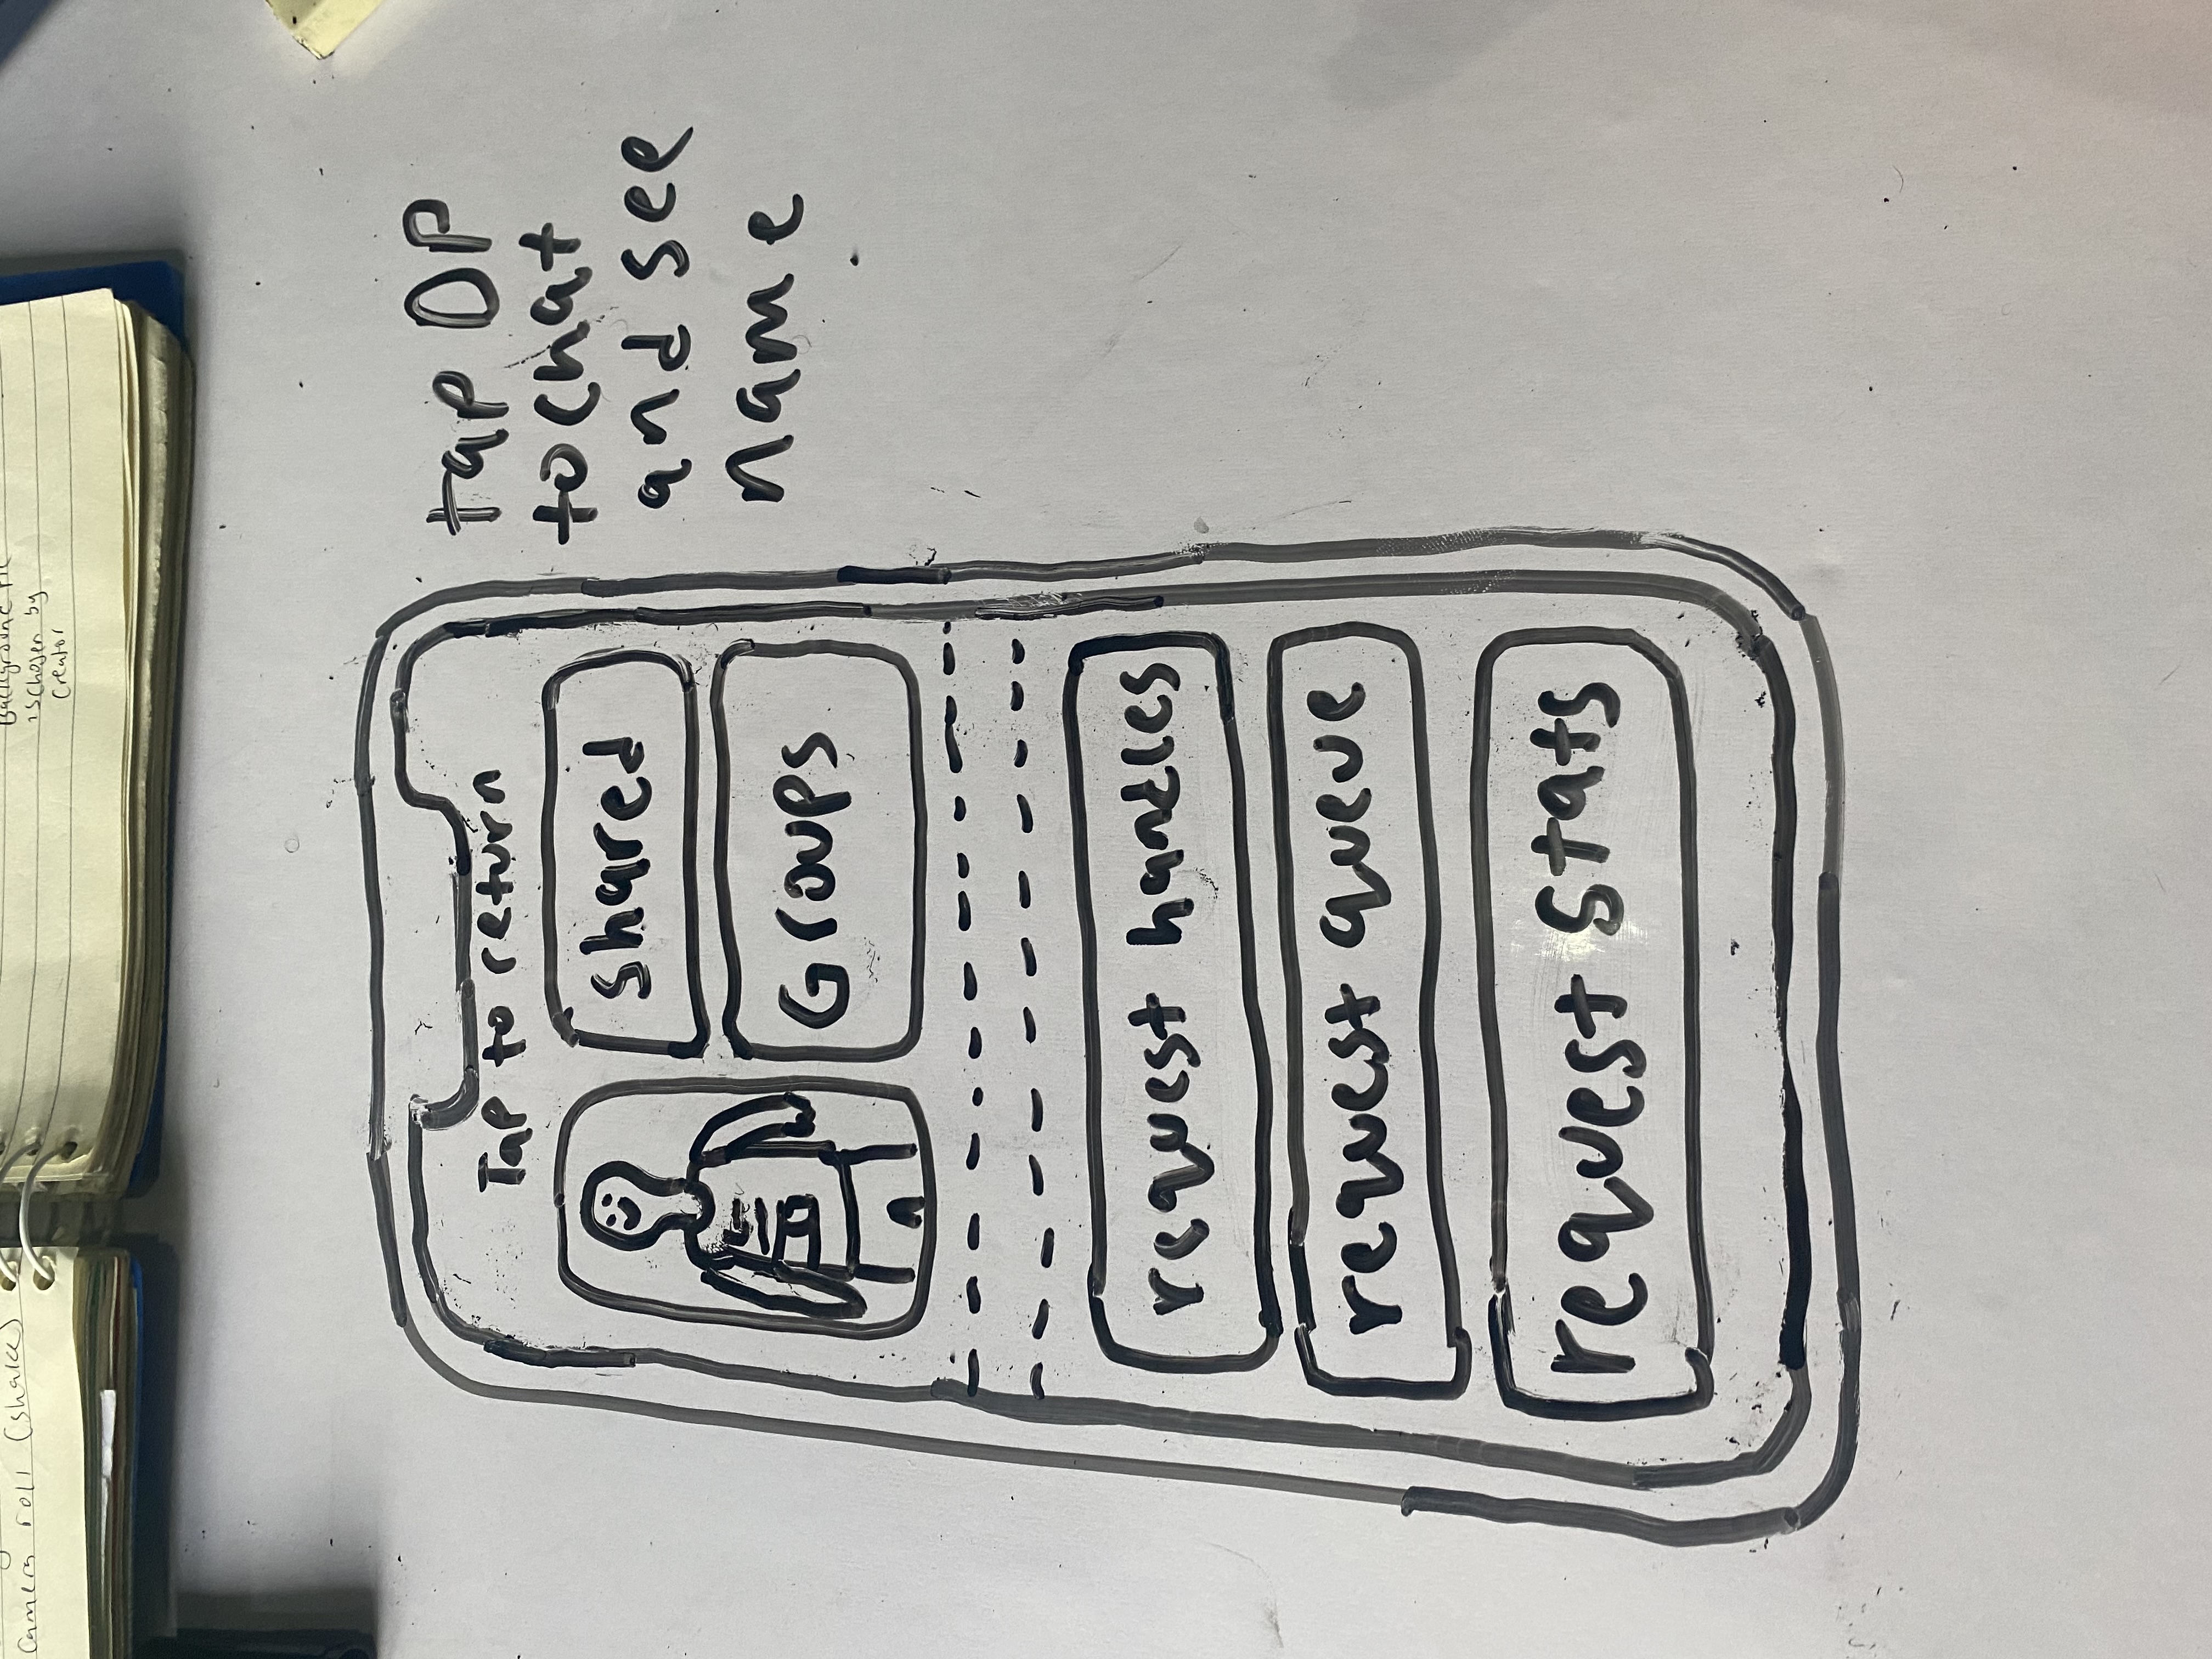 camera roll (shake)
Background Pic
is chosen by
Creator
Tap to return
shared
Groups
request handles
request queue
request stats
tap DP
to chat
and see
name